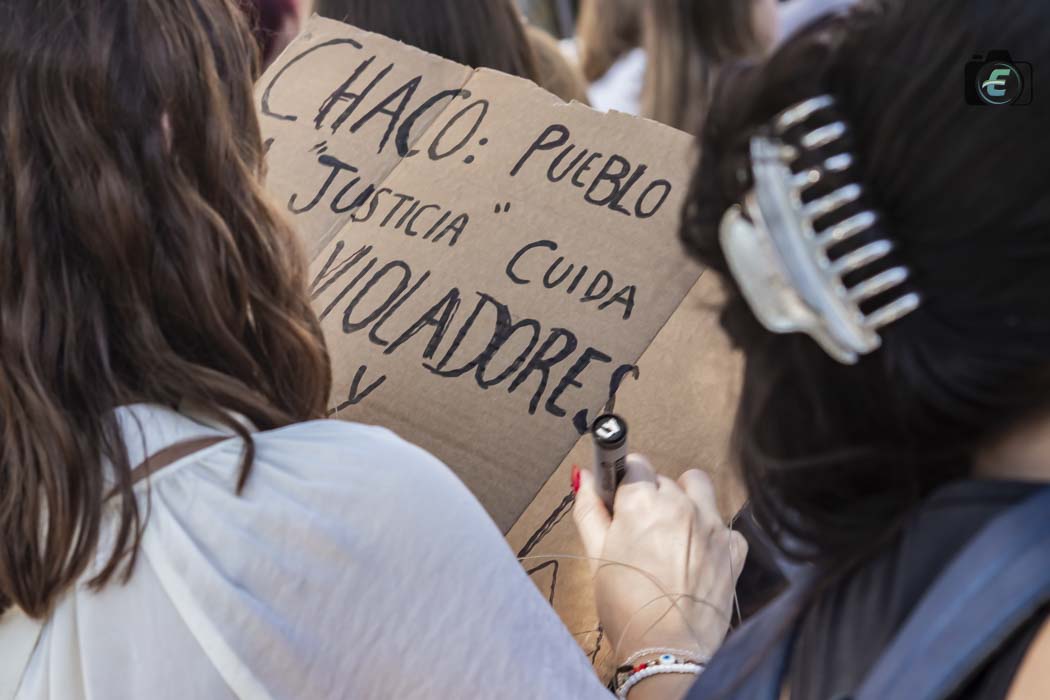 CHACO: PUEBLO
"JUSTICIA" CUIDA
VIOLADORES
Y